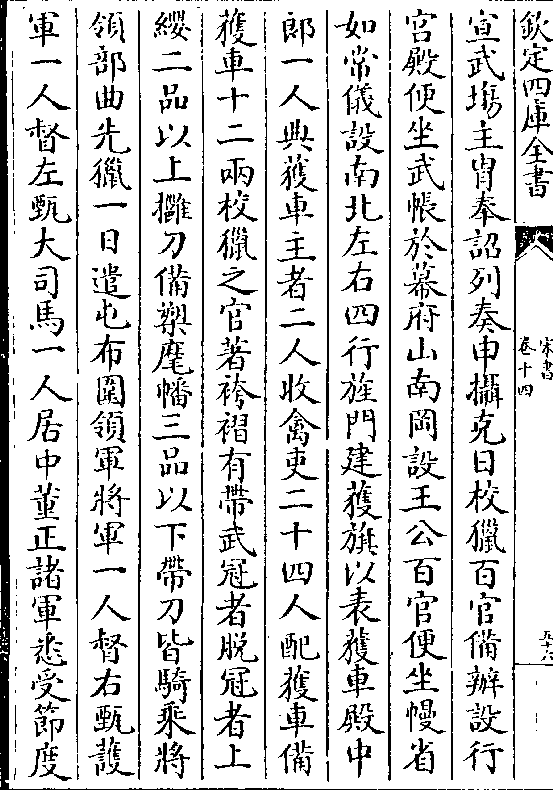 欽定四庫全書
宋書
卷十四
宣武塲主胄奉詔列奏申攝克日校獵百官備辦設行
宮殿便坐武帳於幕府山南岡設王公百官便坐幔省
如常儀設南北左右四行旌門建獲旗以表獲車殿中
郎一人典獲車主者二人收禽吏二十四人配獲車備
獲車十二兩校獵之官著袴褶有帶武冠者脫冠者上
纓二品以上擁刀備槊麾幡三品以下帶刀皆騎乘將
領部曲先獵一日遣屯布圍領軍將軍一人督右甄護
軍一人督左甄大司馬一人居中董正諸軍悉受節度